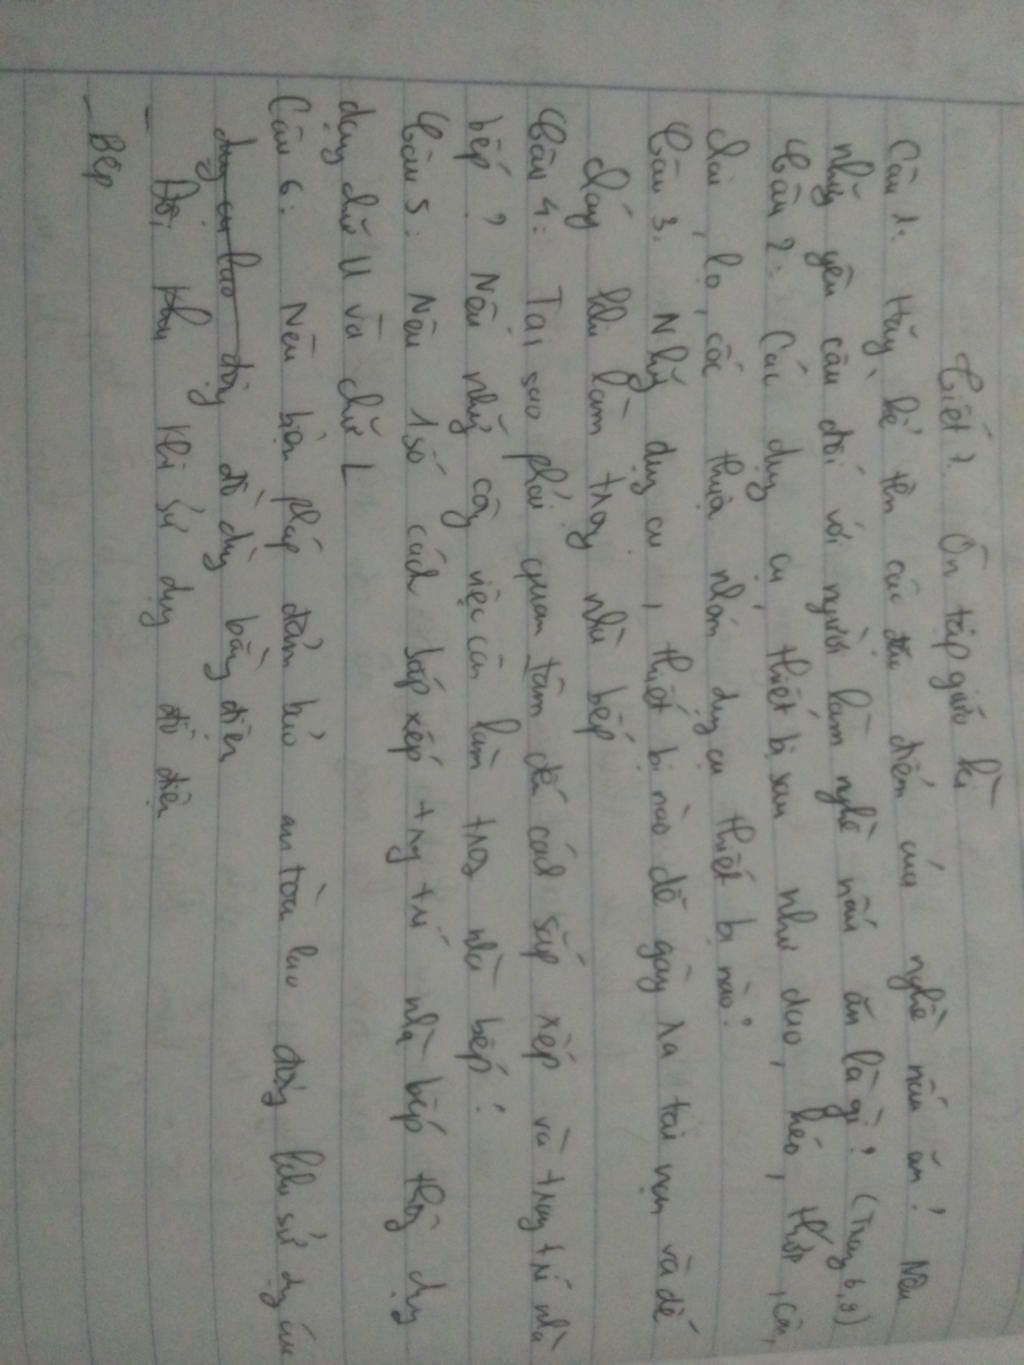 Tiết 7. Ôn tập giữa kì
Câu 1. Hãy kể tên các đặc điểm của nghề nấu ăn? Nêu
những yêu cầu đối với người làm nghề nấu ăn là gì? (Trang 6,9)
Câu 2: Các dụng cụ, thiết bị sau như dao, kéo, thớt, cân,
chai, lọ, cốc thuộc nhóm dụng cụ thiết bị nào?
Câu 3. Những dụng cụ, thiết bị nào dễ gây ra tai nạn và dễ
cháy khi làm trong nhà bếp
Câu 4: Tại sao phải quan tâm đến cách sắp xếp và trang trí nhà
bếp? Nêu những công việc cần làm trong nhà bếp?
Câu 5: Nêu 1 số cách sắp xếp trang trí nhà bếp thông dụng
dạng chữ U và chữ L
Câu 6: Nêu biện pháp đảm bảo an toàn lao động khi sử dụng các
dụng cụ lao động đồ dùng bằng điện
- khi sử dụng đồ điện
- Bếp